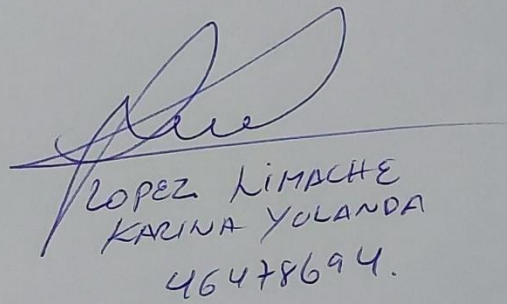 LOPEZ LIMACHE
KARINA YOLANDA
46478694.